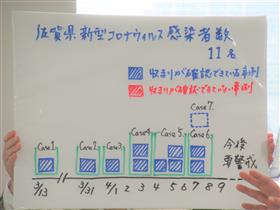 佐賀県新型コロナウィルス感染者数
11名
収まりが確認できている事例
収まりが確認できていない事例
Case 7
Case 1
Case2
Case3
Case4
Case5
Case6
今後
要警戒
3/13
3/31
4/1
2
3
4
5
6
7
8
9